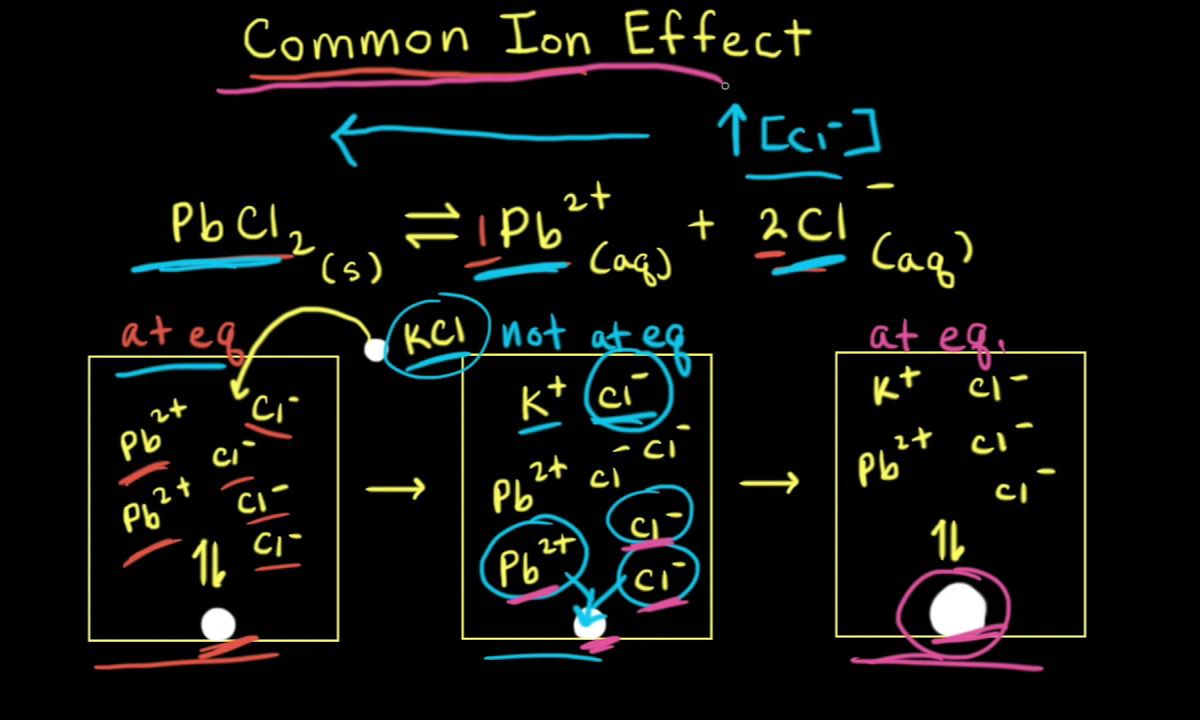 Common Ion Effect
↑[Cl⁻]
PbCl₂(s) ⇌ 1Pb²⁺(aq) + 2Cl⁻(aq)
at eq
KCl
not at eq
at eq.
Pb²⁺ Cl⁻
Cl⁻
Pb²⁺ Cl⁻
Cl⁻
⇌
K⁺ Cl⁻
Cl⁻
Pb²⁺ Cl⁻
Cl⁻
Pb²⁺ Cl⁻
K⁺ Cl⁻
Pb²⁺ Cl⁻
Cl⁻
⇌